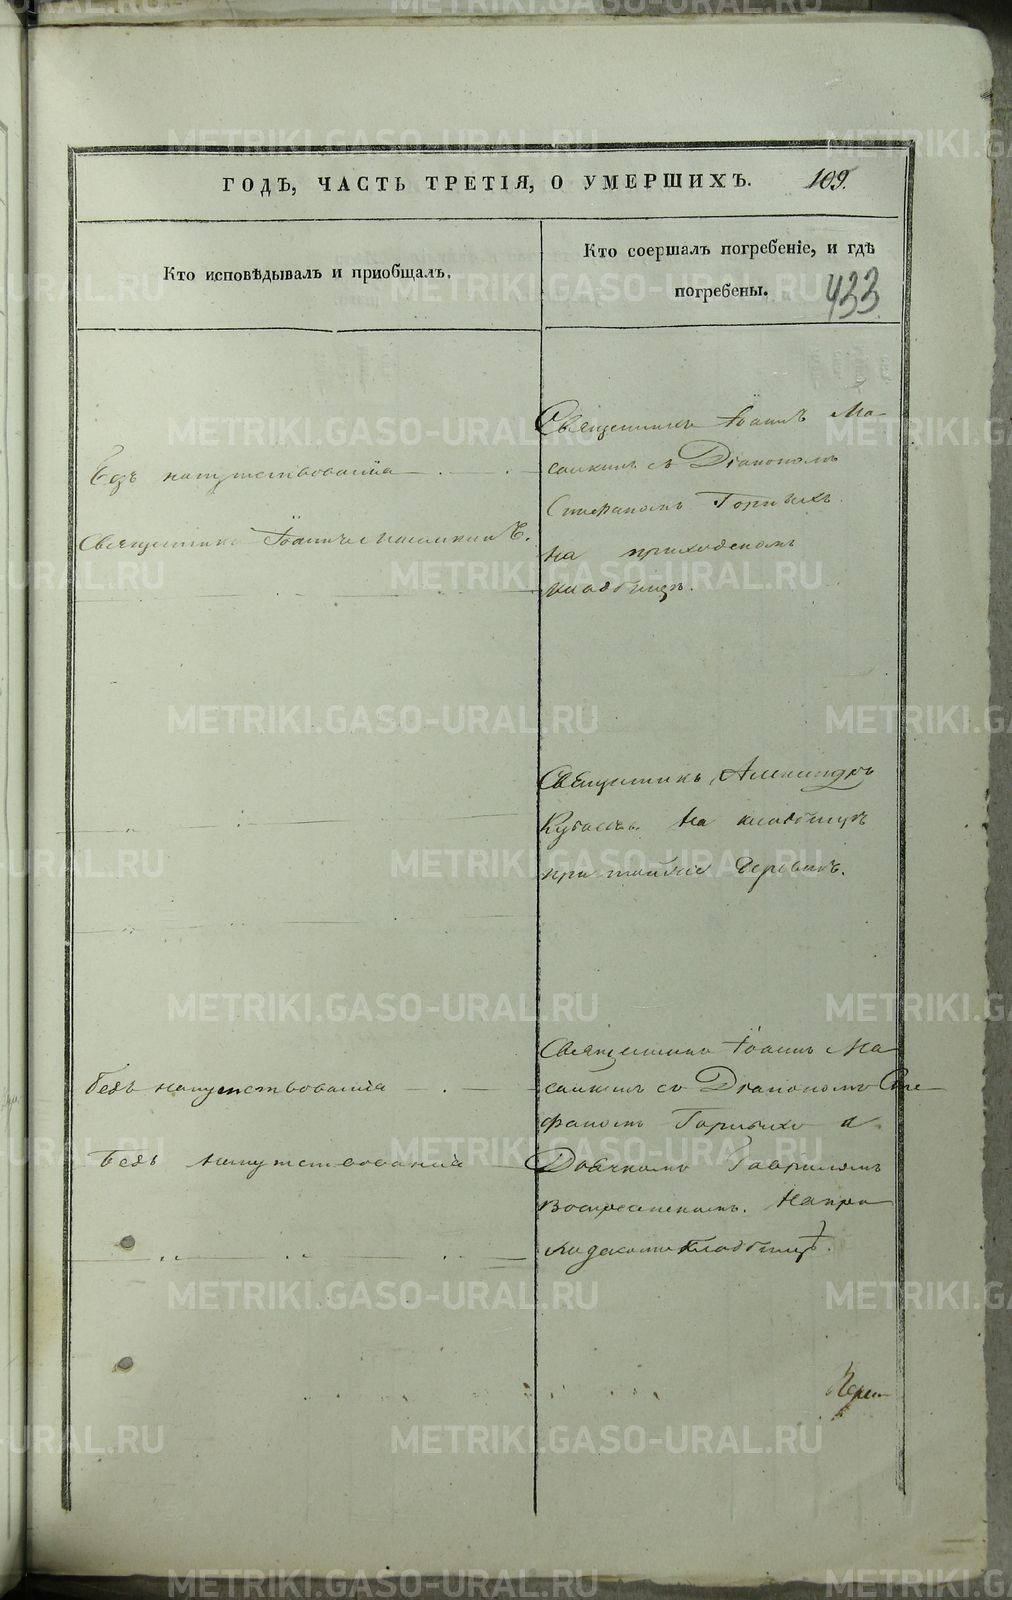 ГОДЪ, ЧАСТЬ ТРЕТІЯ, О УМЕРШИХЪ. 109.
Кто исповѣдывалъ и приобщалъ.
Кто соершалъ погребеніе, и гдѣ
погребены. 433
Безъ напутствованія
Священникъ Іоаннъ Масалкинъ.
Священникъ Іоаннъ Ма-
салкинъ съ Діакономъ
Стефаномъ Горныхъ
на приходскомъ
кладбищѣ.
Священникъ Александръ
на кладбищѣ
при тойже деревнѣ.
безъ напутствованія
безъ напутствованія
Священникъ Іоаннъ Ма
салкинъ со Діакономъ Сте-
фаномъ Горныхъ и
Дьячкомъ Гавриломъ
Воскресенскимъ. На при
ходскомъ кладбищѣ.
METRIKI.GASO-URAL.RU